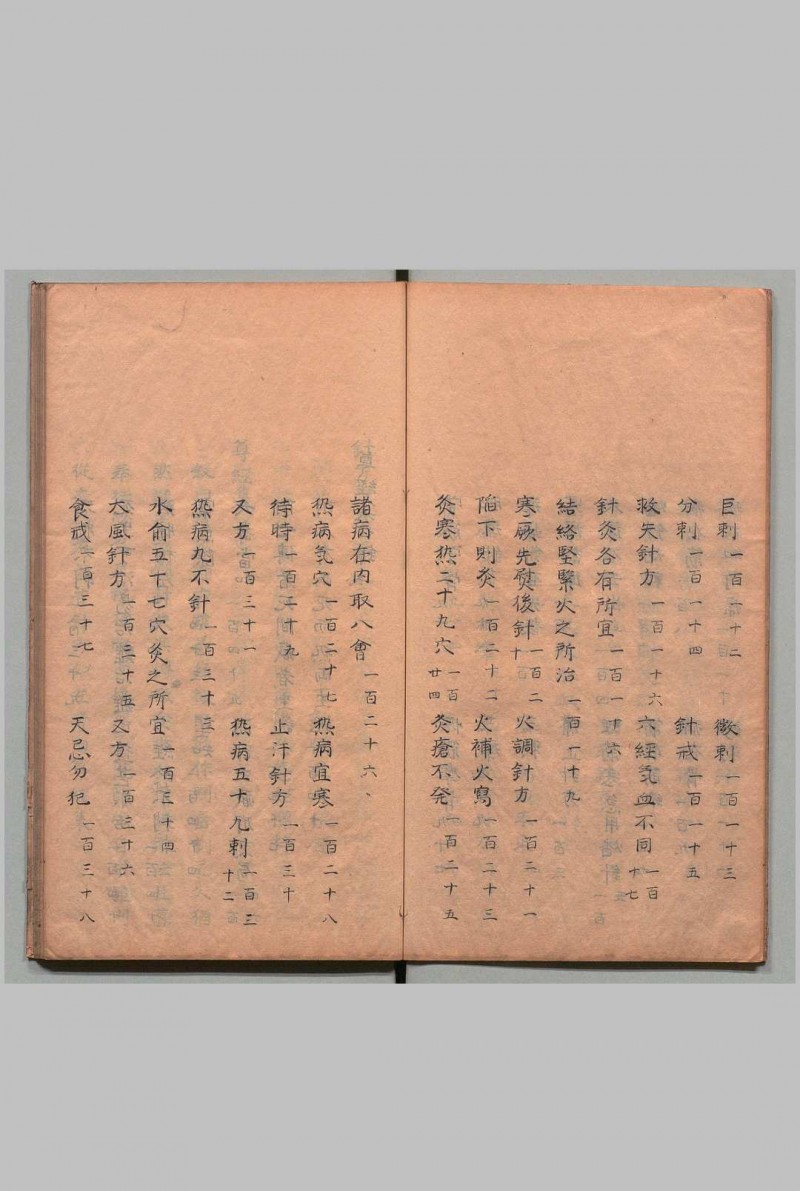 巨刺一百一十二 微刺一百一十三
分刺一百一十四 針戒一百一十五
救失針方一百一十六 六經気血不同一百十七
針灸各有所宜一百一十六
結絡堅緊火之所治一百一十九
寒厥先熨後針一百二十 火調針方一百二十一
陷下則灸一百二十二 火補火寫一百二十三
灸寒熱二十九穴一百廿四 灸瘡不発一百二十五
諸病在內取八會一百二十六、
熱病気穴一百二十七 熱病宜寒一百二十八
待時一百二十九 止汗針方一百三十
又方一百三十一 熱病五十九刺一百三十二
熱病九不針一百三十三
水俞五十七穴灸之所宜一百三十四
大風針方一百三十五 又方一百三十六
食戒一百三十七 天忌勿犯一百三十八